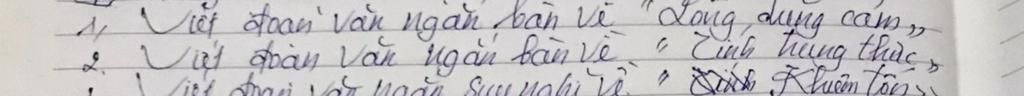 1, Viết đoạn văn ngắn bàn về "Lòng dũng cảm"
2. Viết đoạn văn ngắn bàn về "Tính trung thực"
Viết đoạn văn ngắn suy nghĩ về " Khiêm tốn"